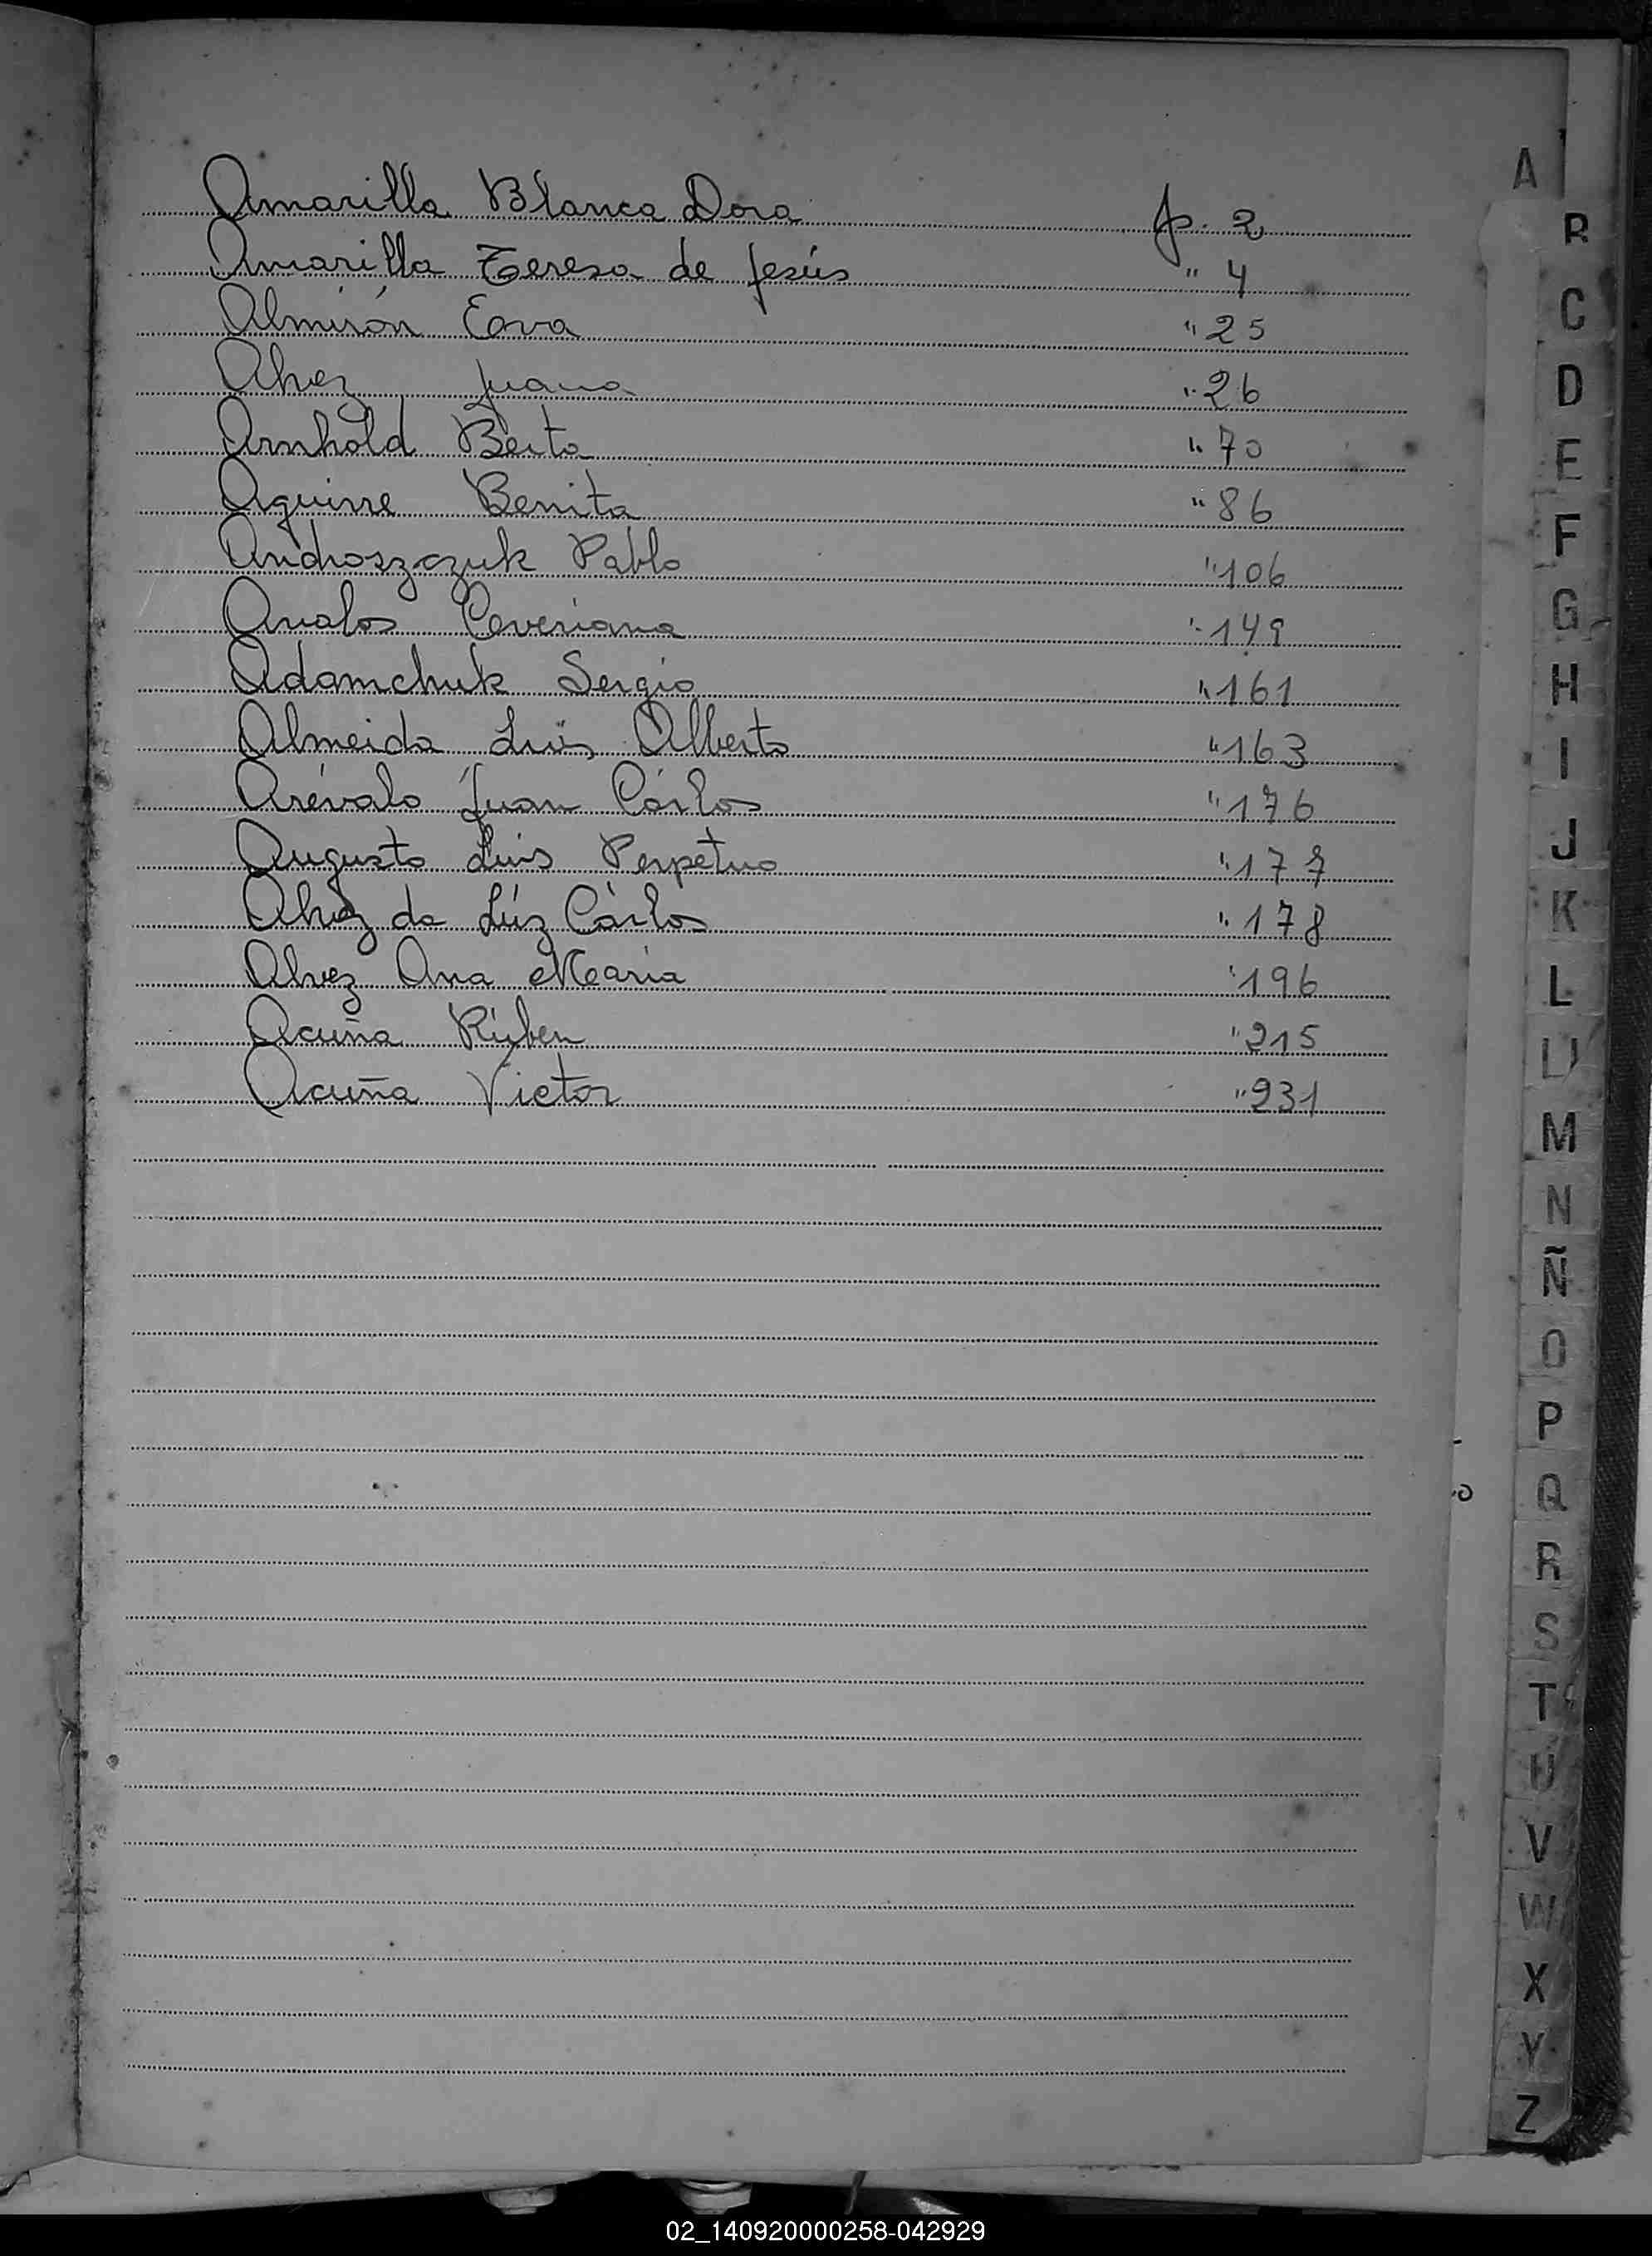 Amarilla Blanca Dora p. 2
Amarilla Teresa de Jesús " 4
Almirón Eova " 25
Alvez Juana " 26
Arnhold Berta " 70
Aguirre Benita " 86
Androszczuk Pablo " 106
Avalos Ceveriana " 149
Adamchuk Sergio " 161
Almeida Luis Alberto " 163
Arévalo Juan Cárlos " 176
Augusto Luis Perpetuo " 177
Alvez da Lúz Cárlos " 178
Alvez Ana María " 196
Acuña Rúben " 215
Acuña Victor " 231
A
B
C
D
E
F
G
H
I
J
K
L
LL
M
N
Ñ
O
P
Q
R
S
T
U
V
W
X
Y
Z
02_140920000258-042929